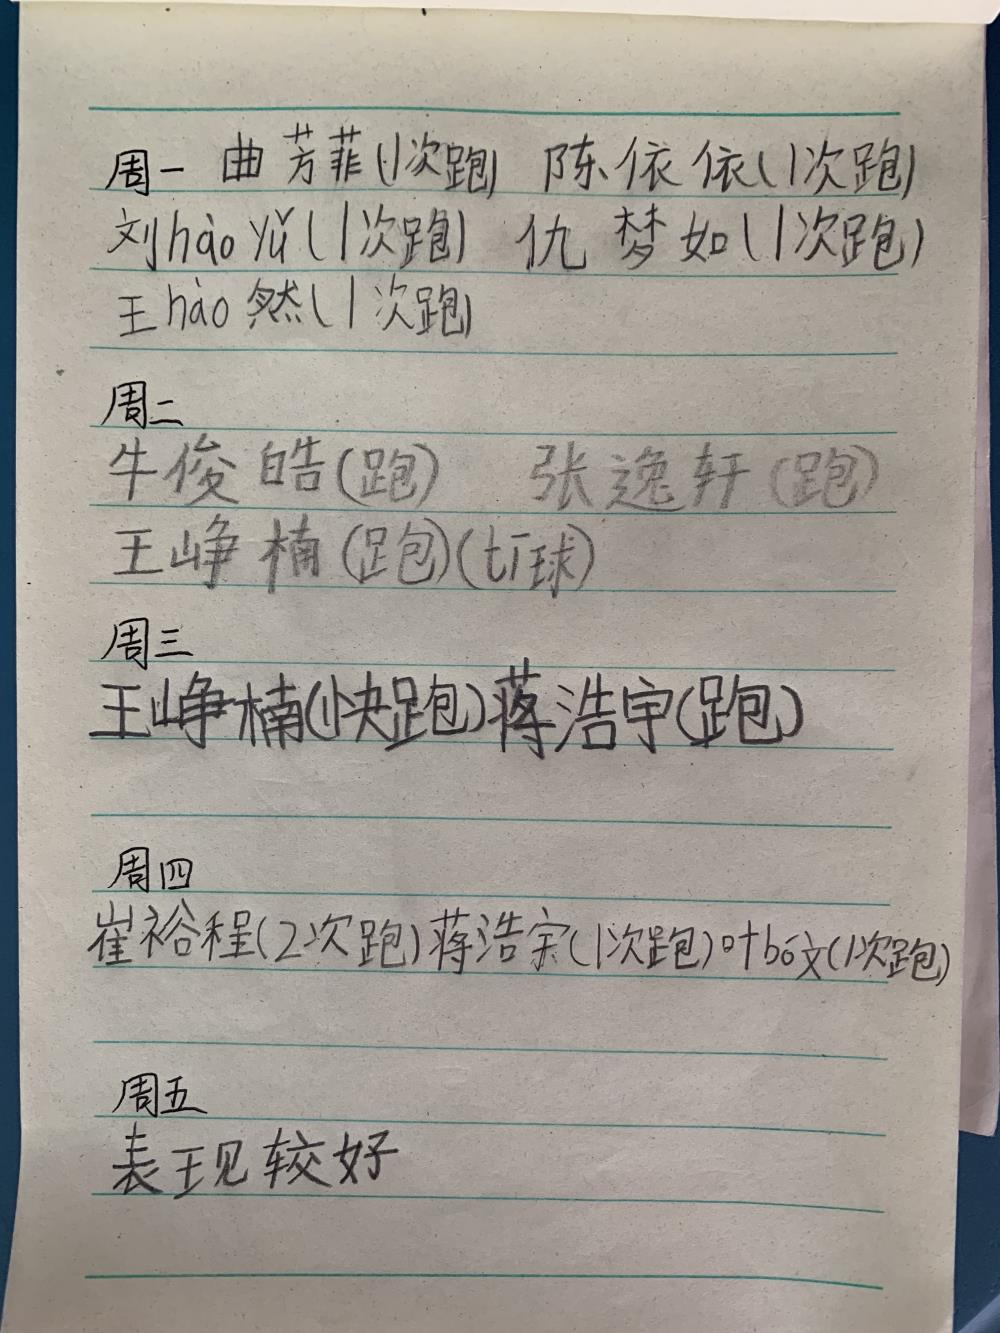 周一 曲芳菲(1次跑) 陈依依(1次跑)
刘hào yǔ(1次跑) 仇梦如(1次跑)
王hào然(1次跑)
周二
牛俊皓(跑) 张逸轩(跑)
王峥楠(跑)(tī球)
周三
王峥楠(快跑)蒋浩宇(跑)
周四
崔裕程(2次跑)蒋浩宇(1次跑)叶bó文(1次跑)
周五
表现较好